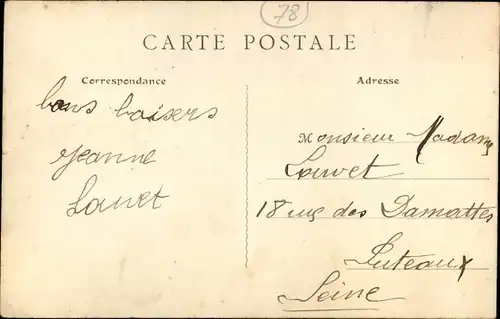 78
CARTE POSTALE
Correspondance
Adresse
bons baisers
Jeanne
Louvet
Monsieur Madame
Louvet
18 rue des Damattes
Puteaux
Seine